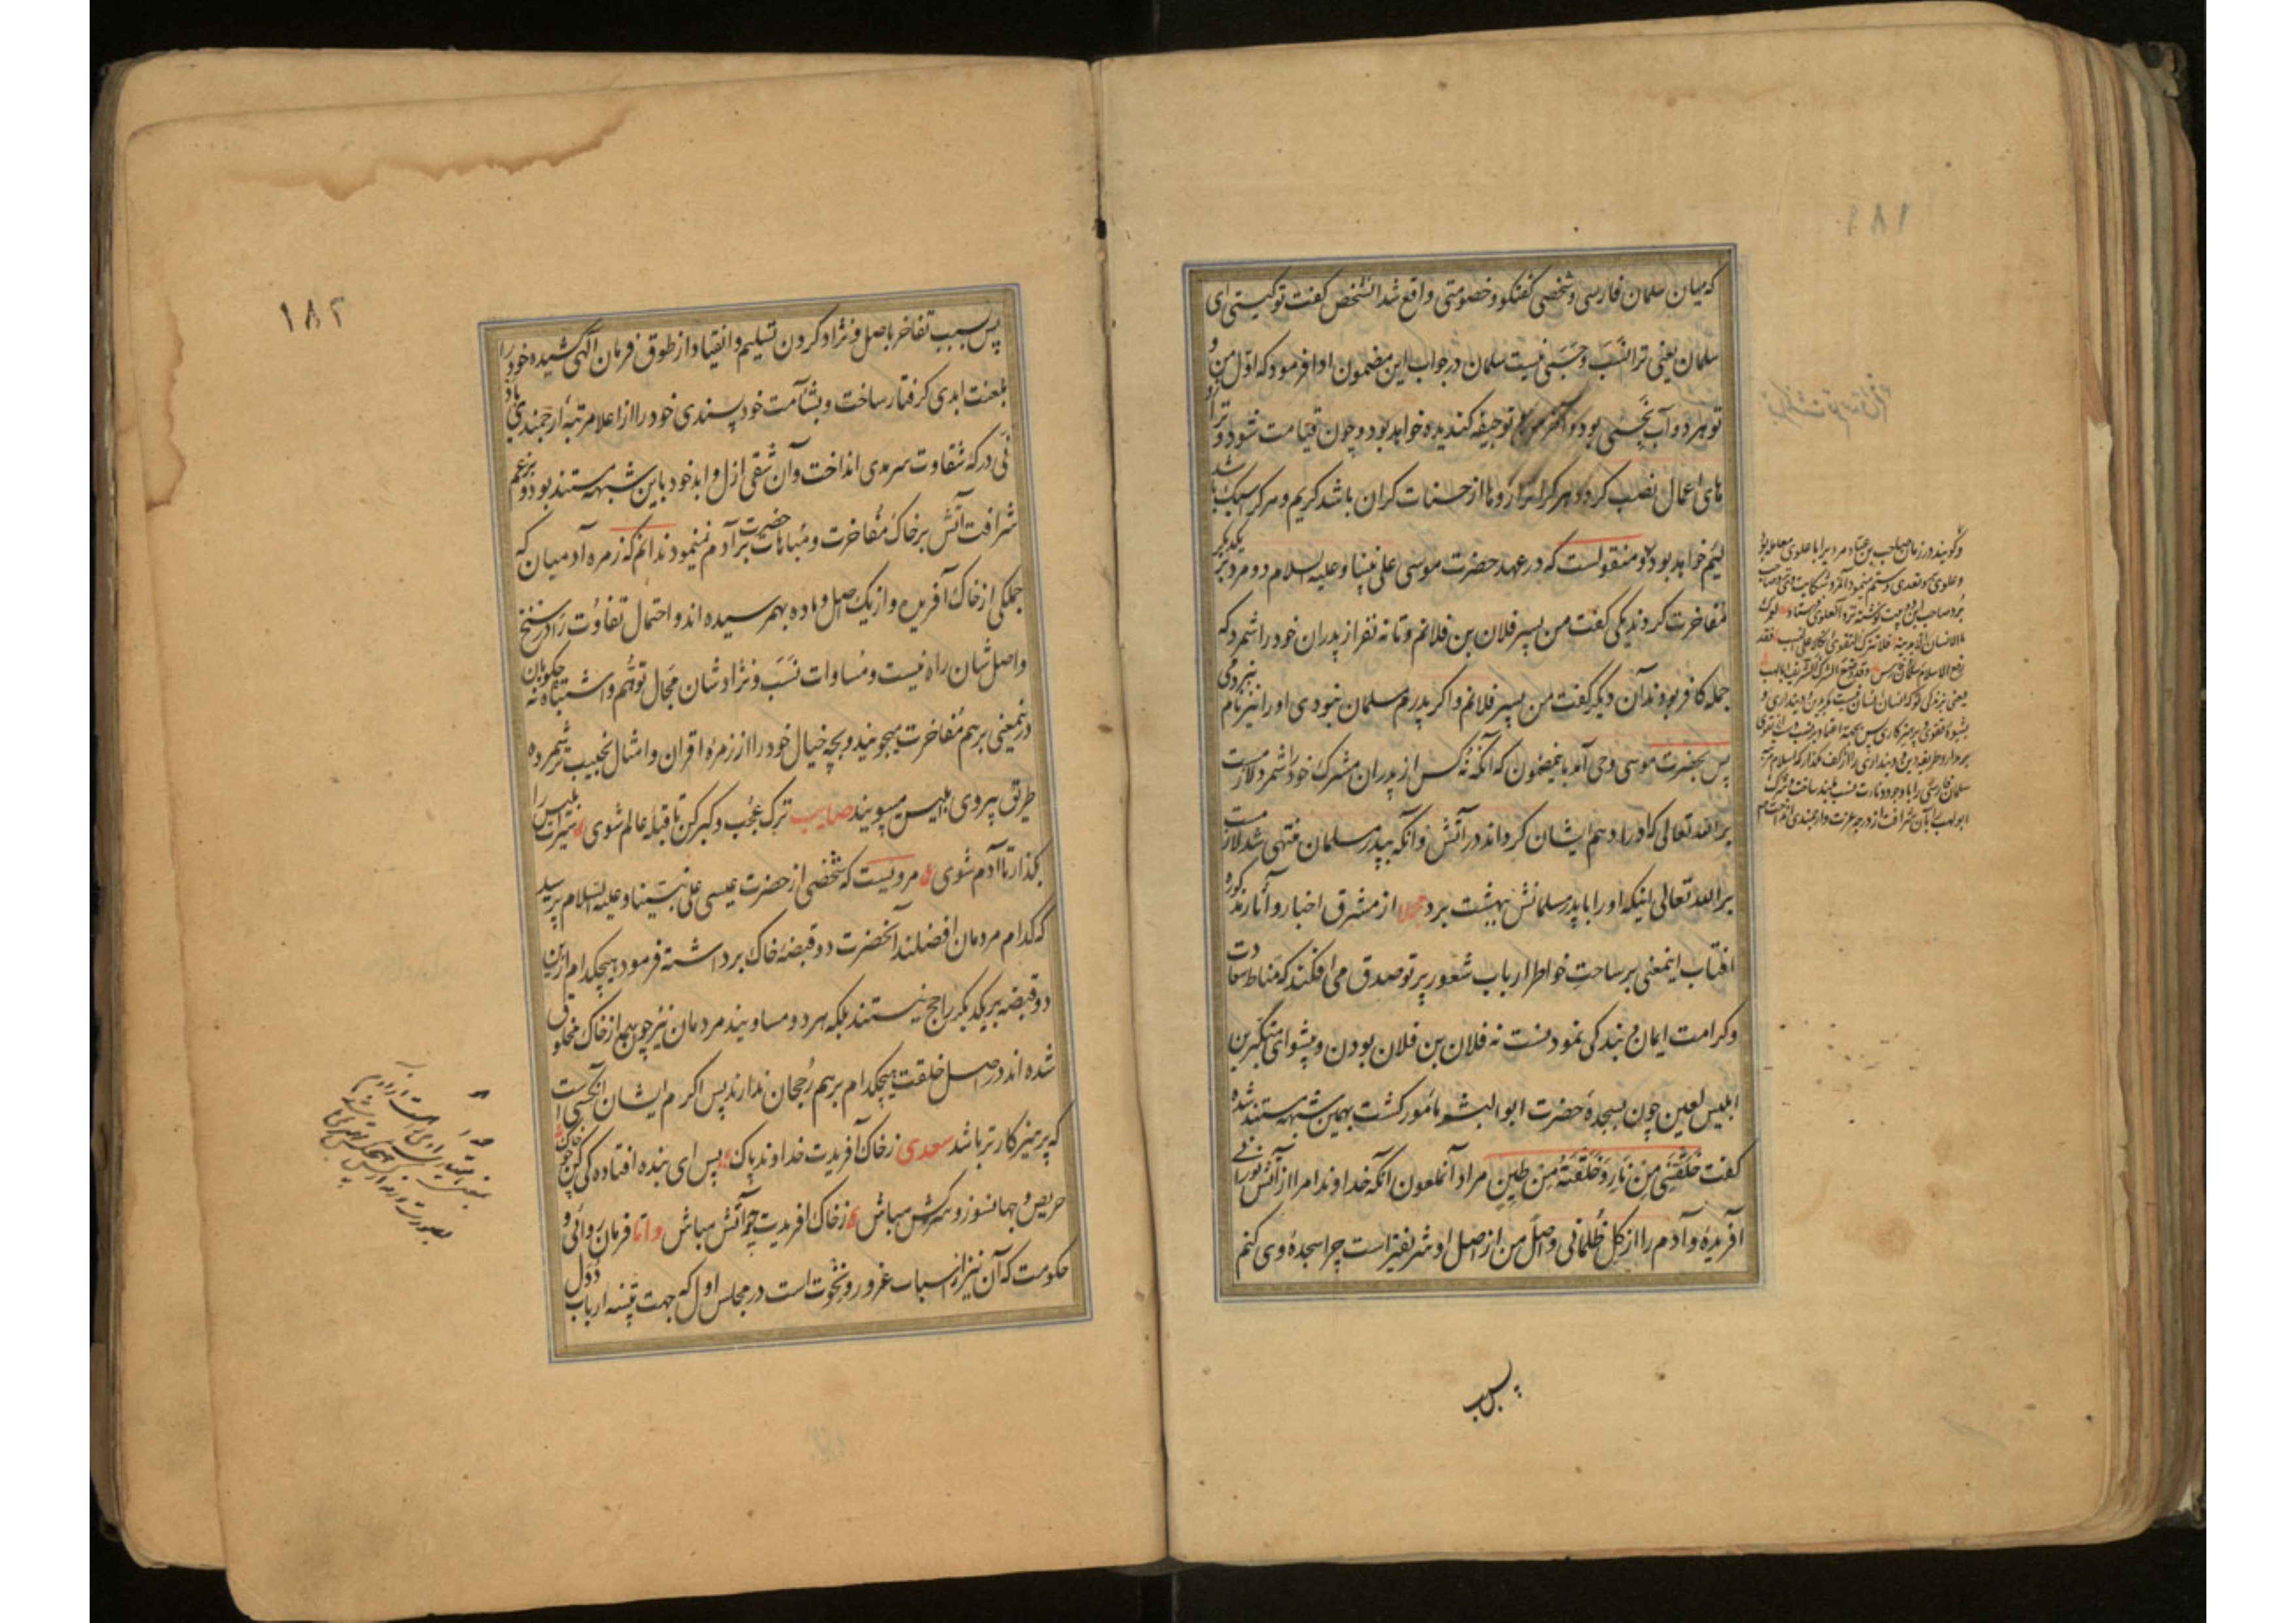 ۱۸۱
که میان سلمان فارسی و شخصی گفتگو و خصومتی واقع شد آنشخص گفت تو کیستی ای
سلمان یعنی ترا نَسَب و حَسَبی نیست سلمان در جواب این مضمون ادا فرمود که اوّل من و
تو هر دو آب نجسی بود و آخر من و تو جیفه کندیده خواهد بود و چون قیامت شود و ترازو
های اعمال نصب کردد هر کرا ترازو ها از حسنات کران باشد کریم و هر کرا سبک باشد
لئیم خواهد بود و منقولست که در عهد حضرت موسی علی نبینا و علیه السلام دو مرد بر یکدیگر
مُفاخرت کردند یکی گفت من پسر فلان بن فلانم و تا نه نفر از پدران خود را شمرد که
جمله کافر بودند آن دیگر گفت من پسر فلانم و اگر پدرم مسلمان نبودی او را نیز نام نبردمی
پس بحضرت موسی وحی آمد باینمضمون که آنکه نُه کس از پدران مشرک خود را شمرد لازمست
بر الله تعالی که او را دهم ایشان کرداند در آتش و آنکه بپدر مسلمان منتهی شد لازمست
بر الله تعالی اینکه او را با پدر مسلمانش بهشت برد مجملا از مشرق اخبار و آثار مذکوره
آفتاب اینمعنی بر ساحتِ خواطر ارباب شعور پرتو صدق می افکند که مناط سعادت
و کرامت ایمان و بندگی نمودنست نه فلان بن فلان بودن و پیشوای متکبرین
ابلیس لعین چون بسجدهٔ حضرت ابو البشر مأمور کشت بهمین شبهه مستند شده
گفت خَلَقْتَنِی مِن نَارٍ وَخَلَقْتَهُ مِن طِینٍ مراد آنملعون آنکه خداوندا مرا از آتش نورانی
آفریدهٔ و آدم را از کِل ظُلمانی و اصل من از اصل او شریفتر است چرا سجدهٔ وی کنم
پس بسبب
و گویند در زمان صاحب بن عباد مردیرا با علوی معامله بود
و علوی بر و تعدی و ستم مینمود آنمرد شکایت
برد صاحب این دو بیت نوشته نزد آنعلوی فرستاد لعمرک
ما الانسان الا بدینه فلا تترک التقوی اتکالا علی النسب فقد
رفع الاسلام سلمان فارس وقد وضع الشرک الشریف ابا لهب
۱۸۲
پس بسبب تفاخر باصل و نژاد کردن تسلیم و انقیاد از طوق فرمان الهی کشیده خود را
بلعنت ابدی گرفتار ساخت و بشآمت خود پسندی خود را از اعلا مرتبهٔ ارجمندی باد
نی درکهٔ شقاوت سرمدی انداخت و آن شقی ازل و ابد خود باین شبهه مستند بود و بزعم
شرافت آتش بر خاک مُفاخرت و مُباهات بر حضرت آدم مینمود ندانم که زمره آدمیان که
جملگی از خاک آفریده و از یک اصل و ماده بهم رسیده اند و احتمال تفاوُت را در سنخ
و اصل شان راه نیست و مُساوات نَسَب و نژادشان مَجال توهُّم و اشتباه نه چگونه بآن
درینمعنی بر هم مُفاخرت میجویند و بچه خیال خود را از زمرهٔ اقران و امثال نجیب تر شمرده
طریق پیروی ابلیس میپویند صایب ترک عُجب و کبر کن تا قبلهٔ عالم شوی سیرت ابلیس را
بگذار تا آدم شوی مرویست که شخصی از حضرت عیسی علی نبیّنا و علیه السّلام پرسید
که کدام مردمان افضلند آنحضرت دو قبضهٔ خاک برداشته فرمود هیچکدام ازین
دو قبضه بر یکدیگر راجح نیستند بلکه هر دو مساویند مردمان نیز چون همه از خاک مخلوق
شده اند در اصل خلقت هیچکدام بر هم رُجحان ندارند پس اکرم ایشان آنکسی است
که پرهیزکارتر باشد سعدی ز خاک آفریدت خداوند پاک پس ای بنده افتادگی کن چو خاک
حریص و جهانسوز و سرکش مباش ز خاک آفریدت چو آتش مباش و اما فرمان روائی و
حکومت که آن نیز از اسباب غرور و نخوت است در مجلس اول که جهت تنبیه ارباب دُوَل